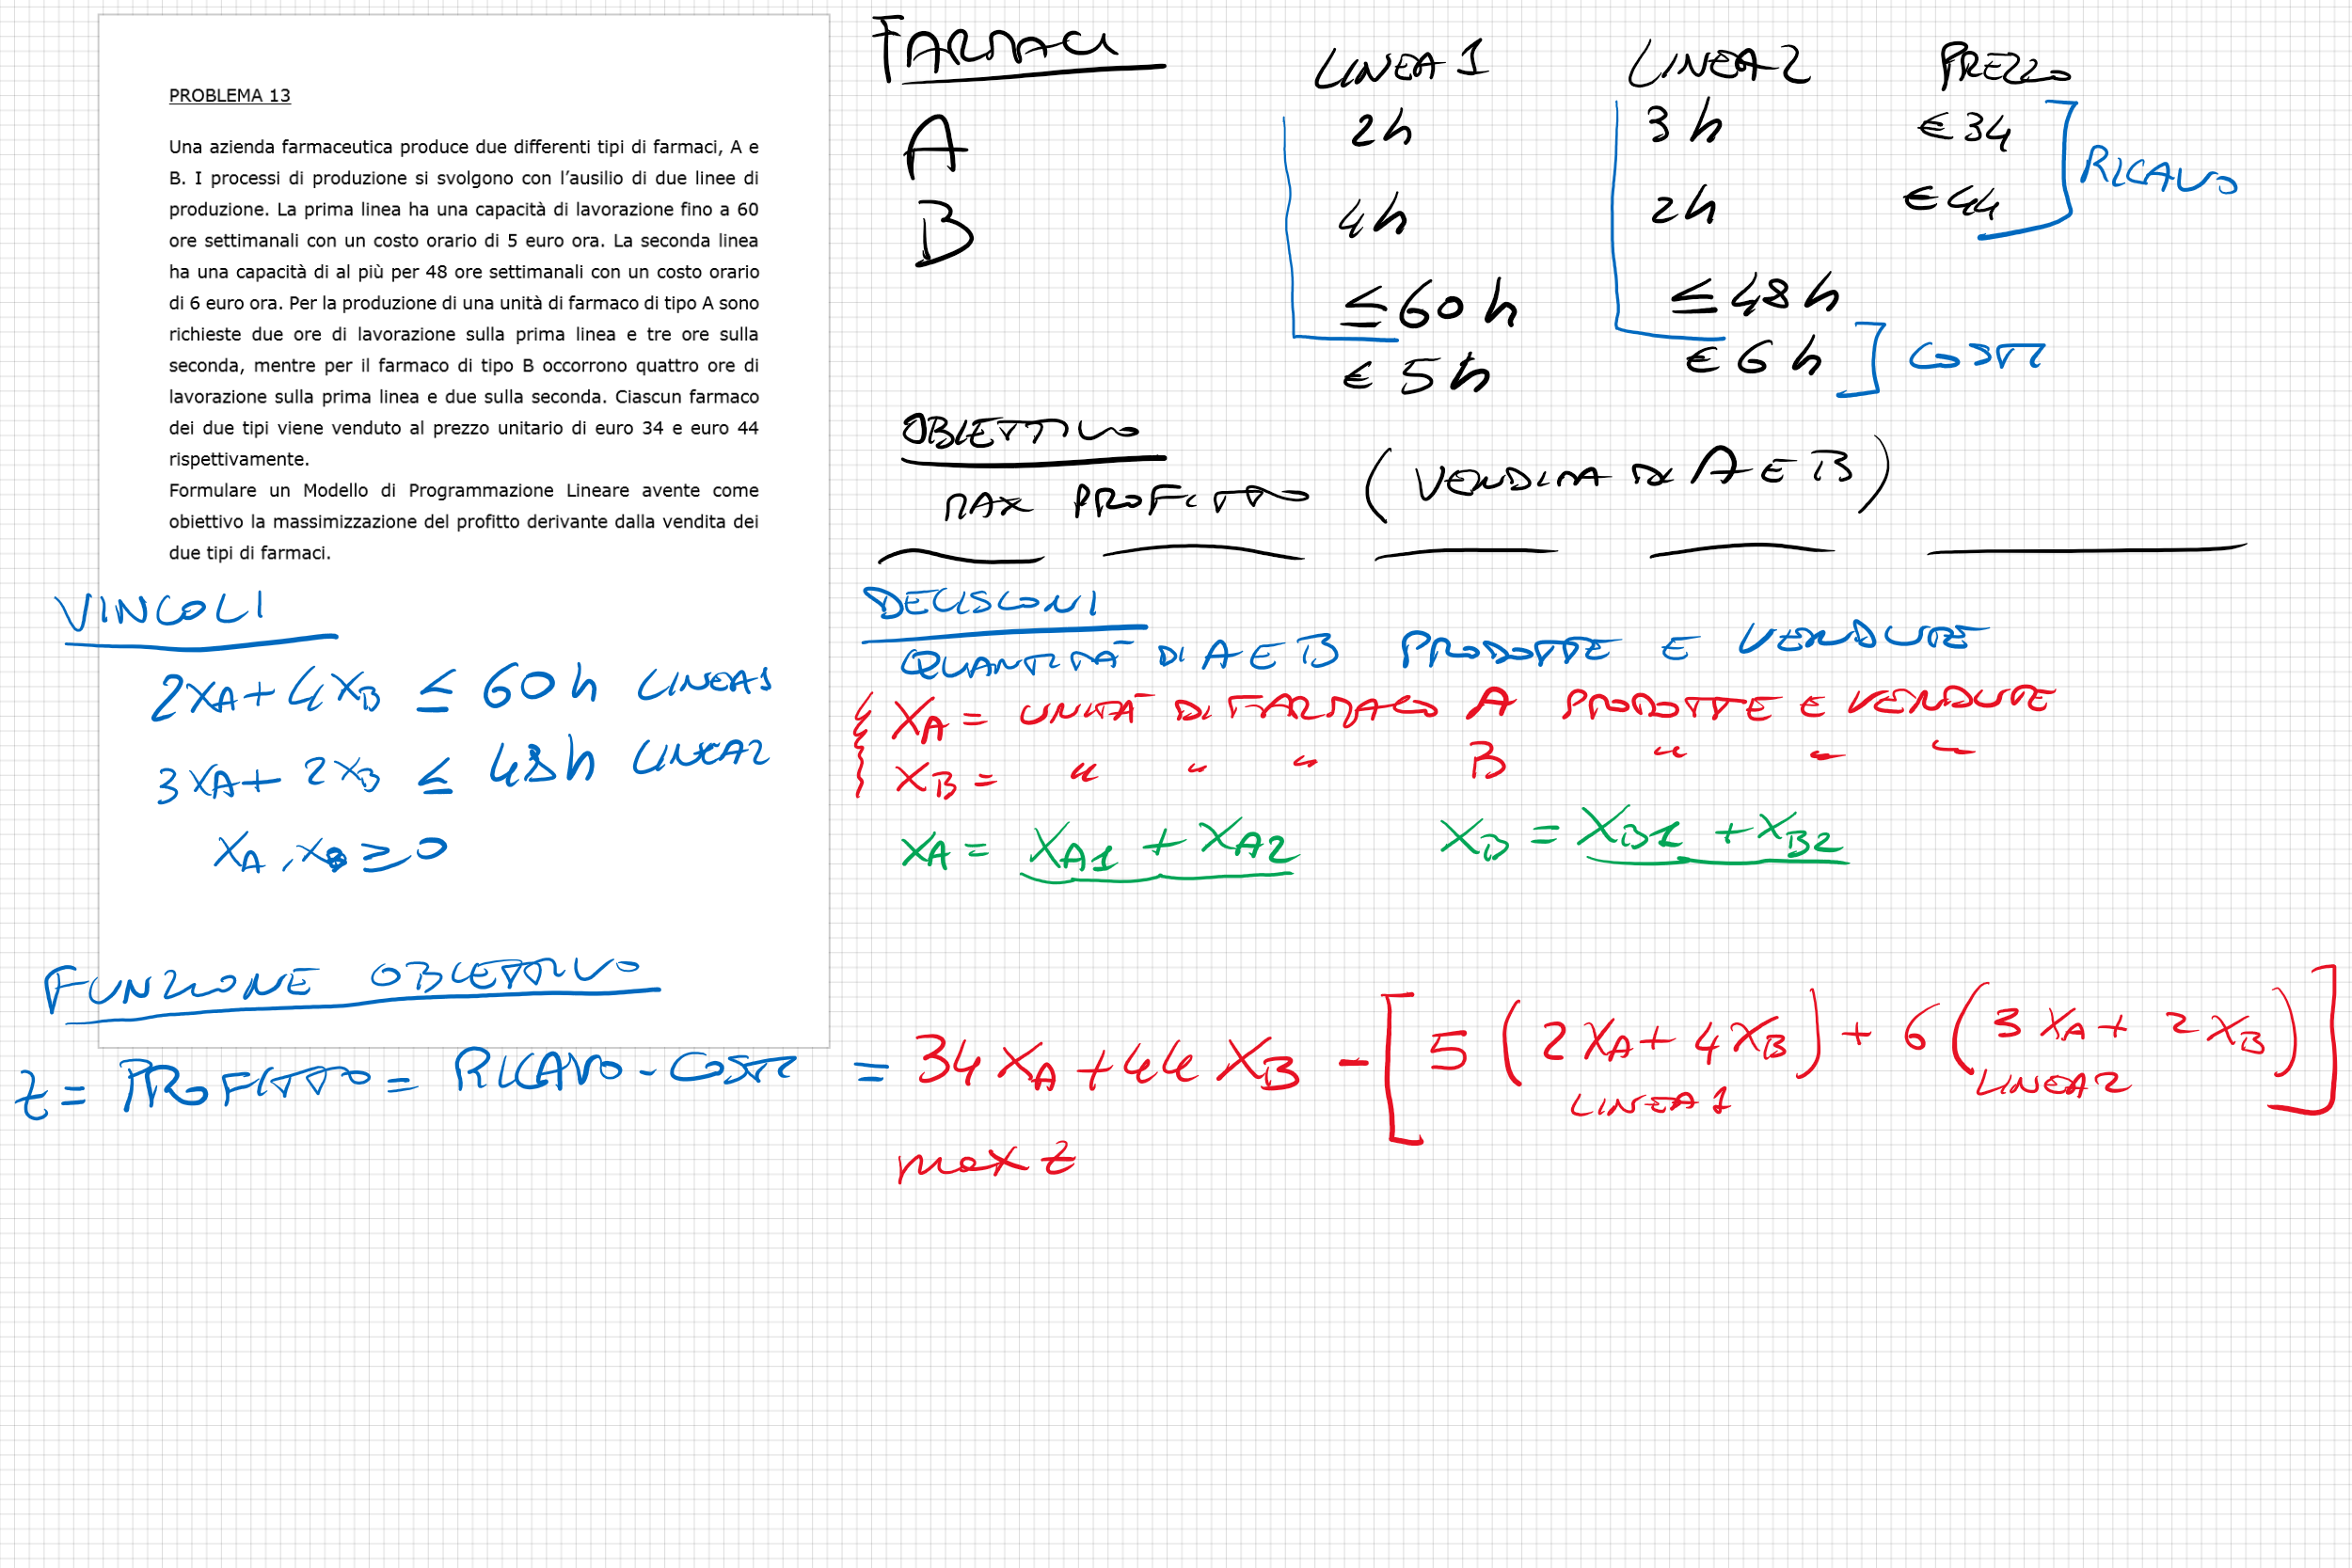 PROBLEMA 13
Una azienda farmaceutica produce due differenti tipi di farmaci, A e
B. I processi di produzione si svolgono con l'ausilio di due linee di
produzione. La prima linea ha una capacità di lavorazione fino a 60
ore settimanali con un costo orario di 5 euro ora. La seconda linea
ha una capacità di al più per 48 ore settimanali con un costo orario
di 6 euro ora. Per la produzione di una unità di farmaco di tipo A sono
richieste due ore di lavorazione sulla prima linea e tre ore sulla
seconda, mentre per il farmaco di tipo B occorrono quattro ore di
lavorazione sulla prima linea e due sulla seconda. Ciascun farmaco
dei due tipi viene venduto al prezzo unitario di euro 34 e euro 44
rispettivamente.
Formulare un Modello di Programmazione Lineare avente come
obiettivo la massimizzazione del profitto derivante dalla vendita dei
due tipi di farmaci.
FARMACI LINEA 1 LINEA 2 PREZZO
A 2h 3h € 34
B 4h 2h € 44
RICAVO
≤ 60 h ≤ 48 h
€ 5 h € 6 h COSTI
OBIETTIVO
MAX PROFITTO (VENDITA DI A E B)
DECISIONI
QUANTITÀ DI A E B PRODOTTE E VENDUTE
XA = UNITÀ DI FARMACO A PRODOTTE E VENDUTE
XB = " " " B " " "
XA = XA1 + XA2 XB = XB1 + XB2
VINCOLI
2XA + 4XB ≤ 60 h LINEA1
3XA + 2XB ≤ 48h LINEA2
XA, XB ≥ 0
FUNZIONE OBIETTIVO
z = PROFITTO = RICAVO - COSTI = 34 XA + 44 XB - [5 (2XA + 4XB) + 6 (3XA + 2XB)]
LINEA 1 LINEA 2
max z